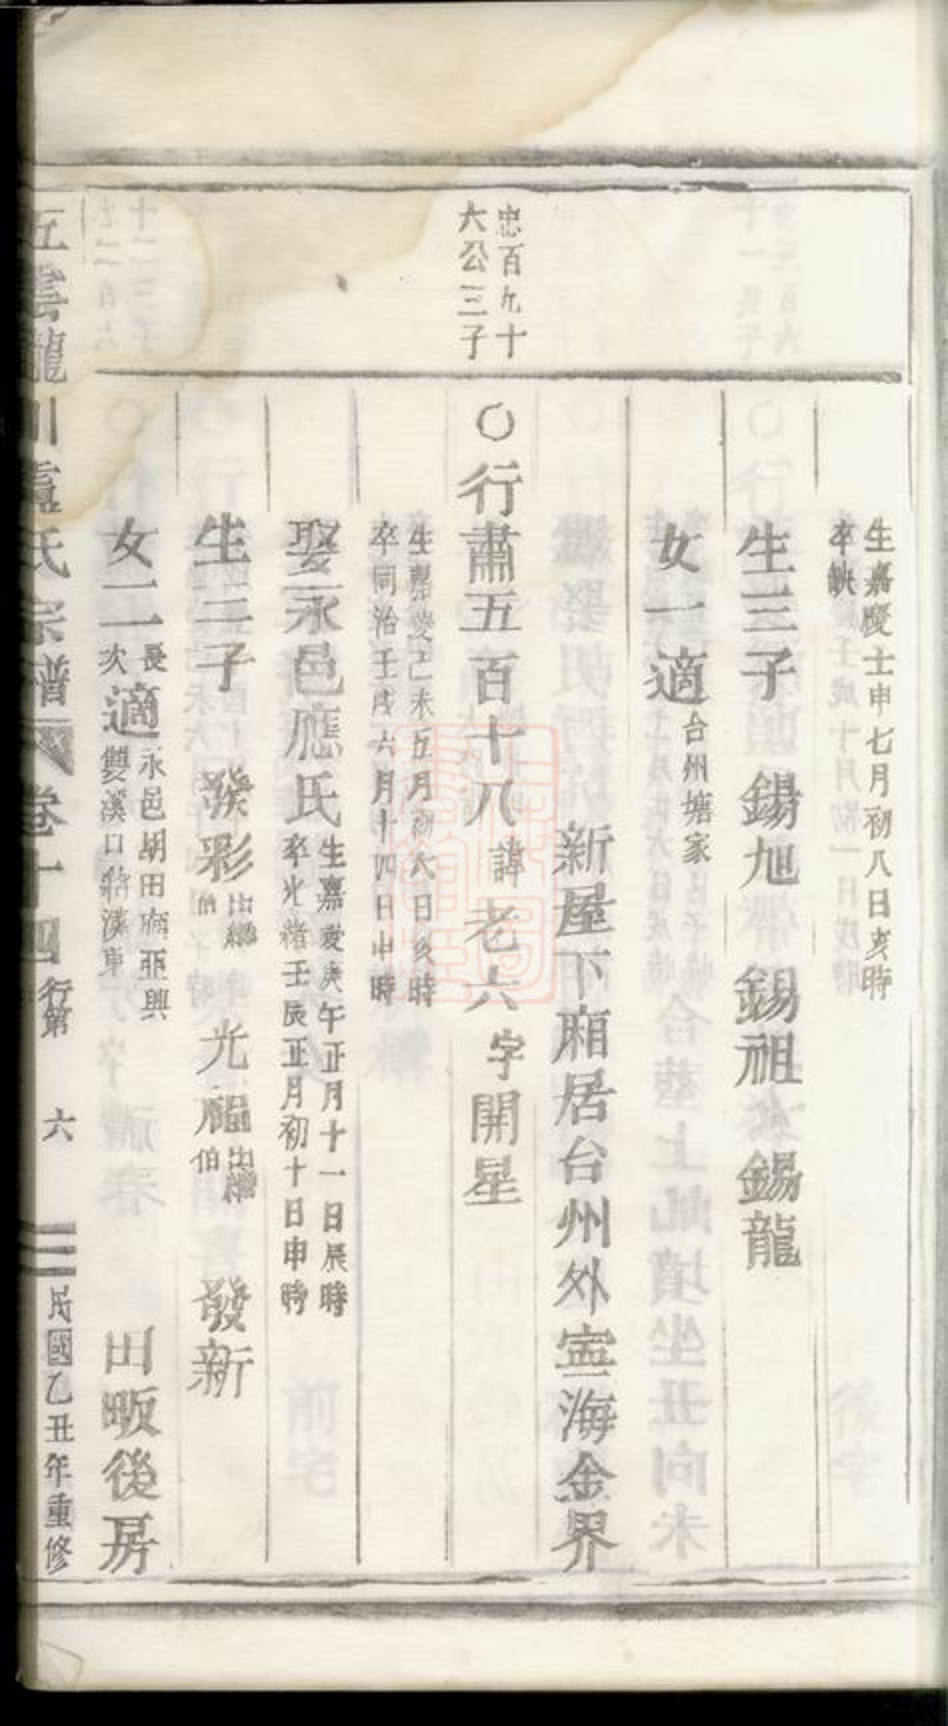 生嘉慶士申七月初八日亥時
卒缺
生三子 錫旭 錫祖 錫龍
女一適台州塘家
新屋下廂居台州外寍海金界
忠百九十
六公三子
○行肅五百十八諱老六字開星
生嘉慶己未五月初六日亥時
卒同治壬戌六月十四日申時
娶永邑應氏
生嘉慶庚午正月十一日辰時
卒光緒壬辰正月初十日申時
生三子 發彩出繼伯 光福出繼伯 發新
女二
長
次
適
永邑胡田 亜興
雙溪口蔣漢東
田畈後房
五雲龍川盧氏宗譜 卷十四 行第 六 民國乙丑年重修